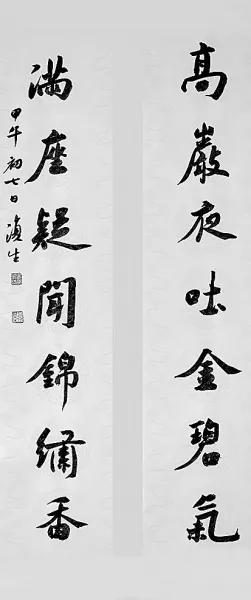 高巖夜吐金碧氣
滿座疑聞錦繡香
甲午初七日演生